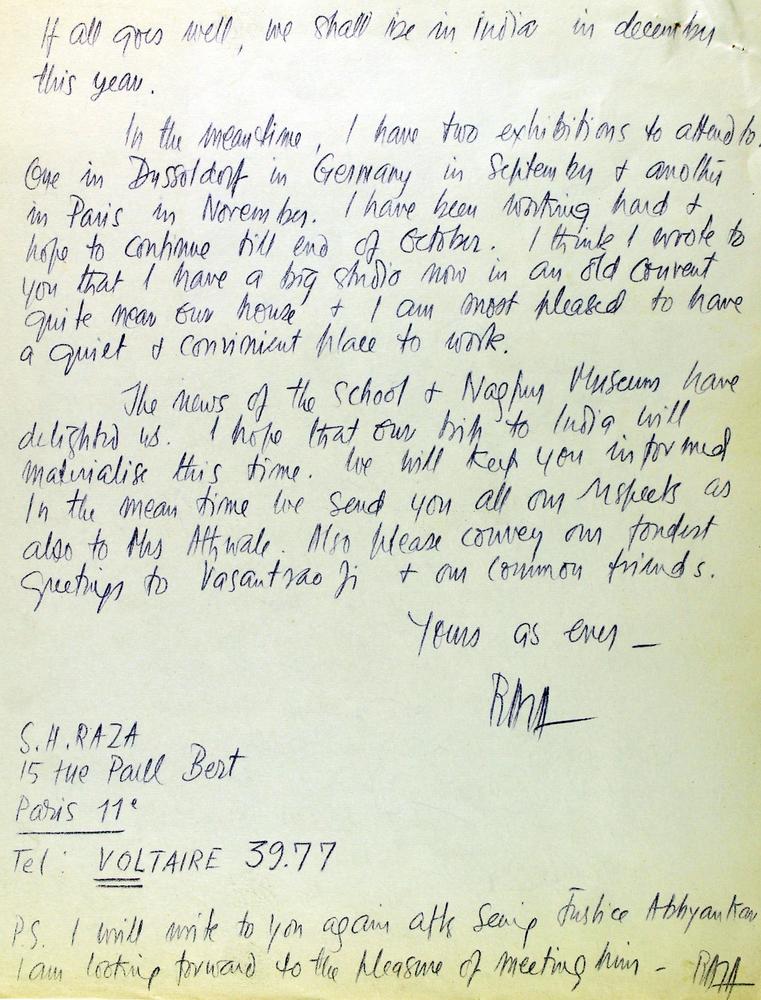 If all goes well, we shall be in India in december
this year.
In the meantime, I have two exhibitions to attend to.
One in Dussoldorf in Germany in September & another
in Paris in November. I have been working hard &
hope to continue till end of October. I think I wrote to
you that I have a big studio now in an old convent
quite near our house & I am most pleased to have
a quiet & convinient place to work.
The news of the School & Nagpur Museum have
delighted us. I hope that our trip to India will
materialise this time. We will keep you informed
In the mean time we send you all our respects as
also to Mrs Athwale. Also please convey our fondest
greetings to Vasantrao Ji & our common friends.
Yours as ever —
RAZA
S.H. RAZA
15 rue Paul Bert
Paris 11e
Tel: VOLTAIRE 39.77
P.S. I will write to you again after seeing Justice Abhyankar
I am looking forward to the pleasure of meeting him - RAZA